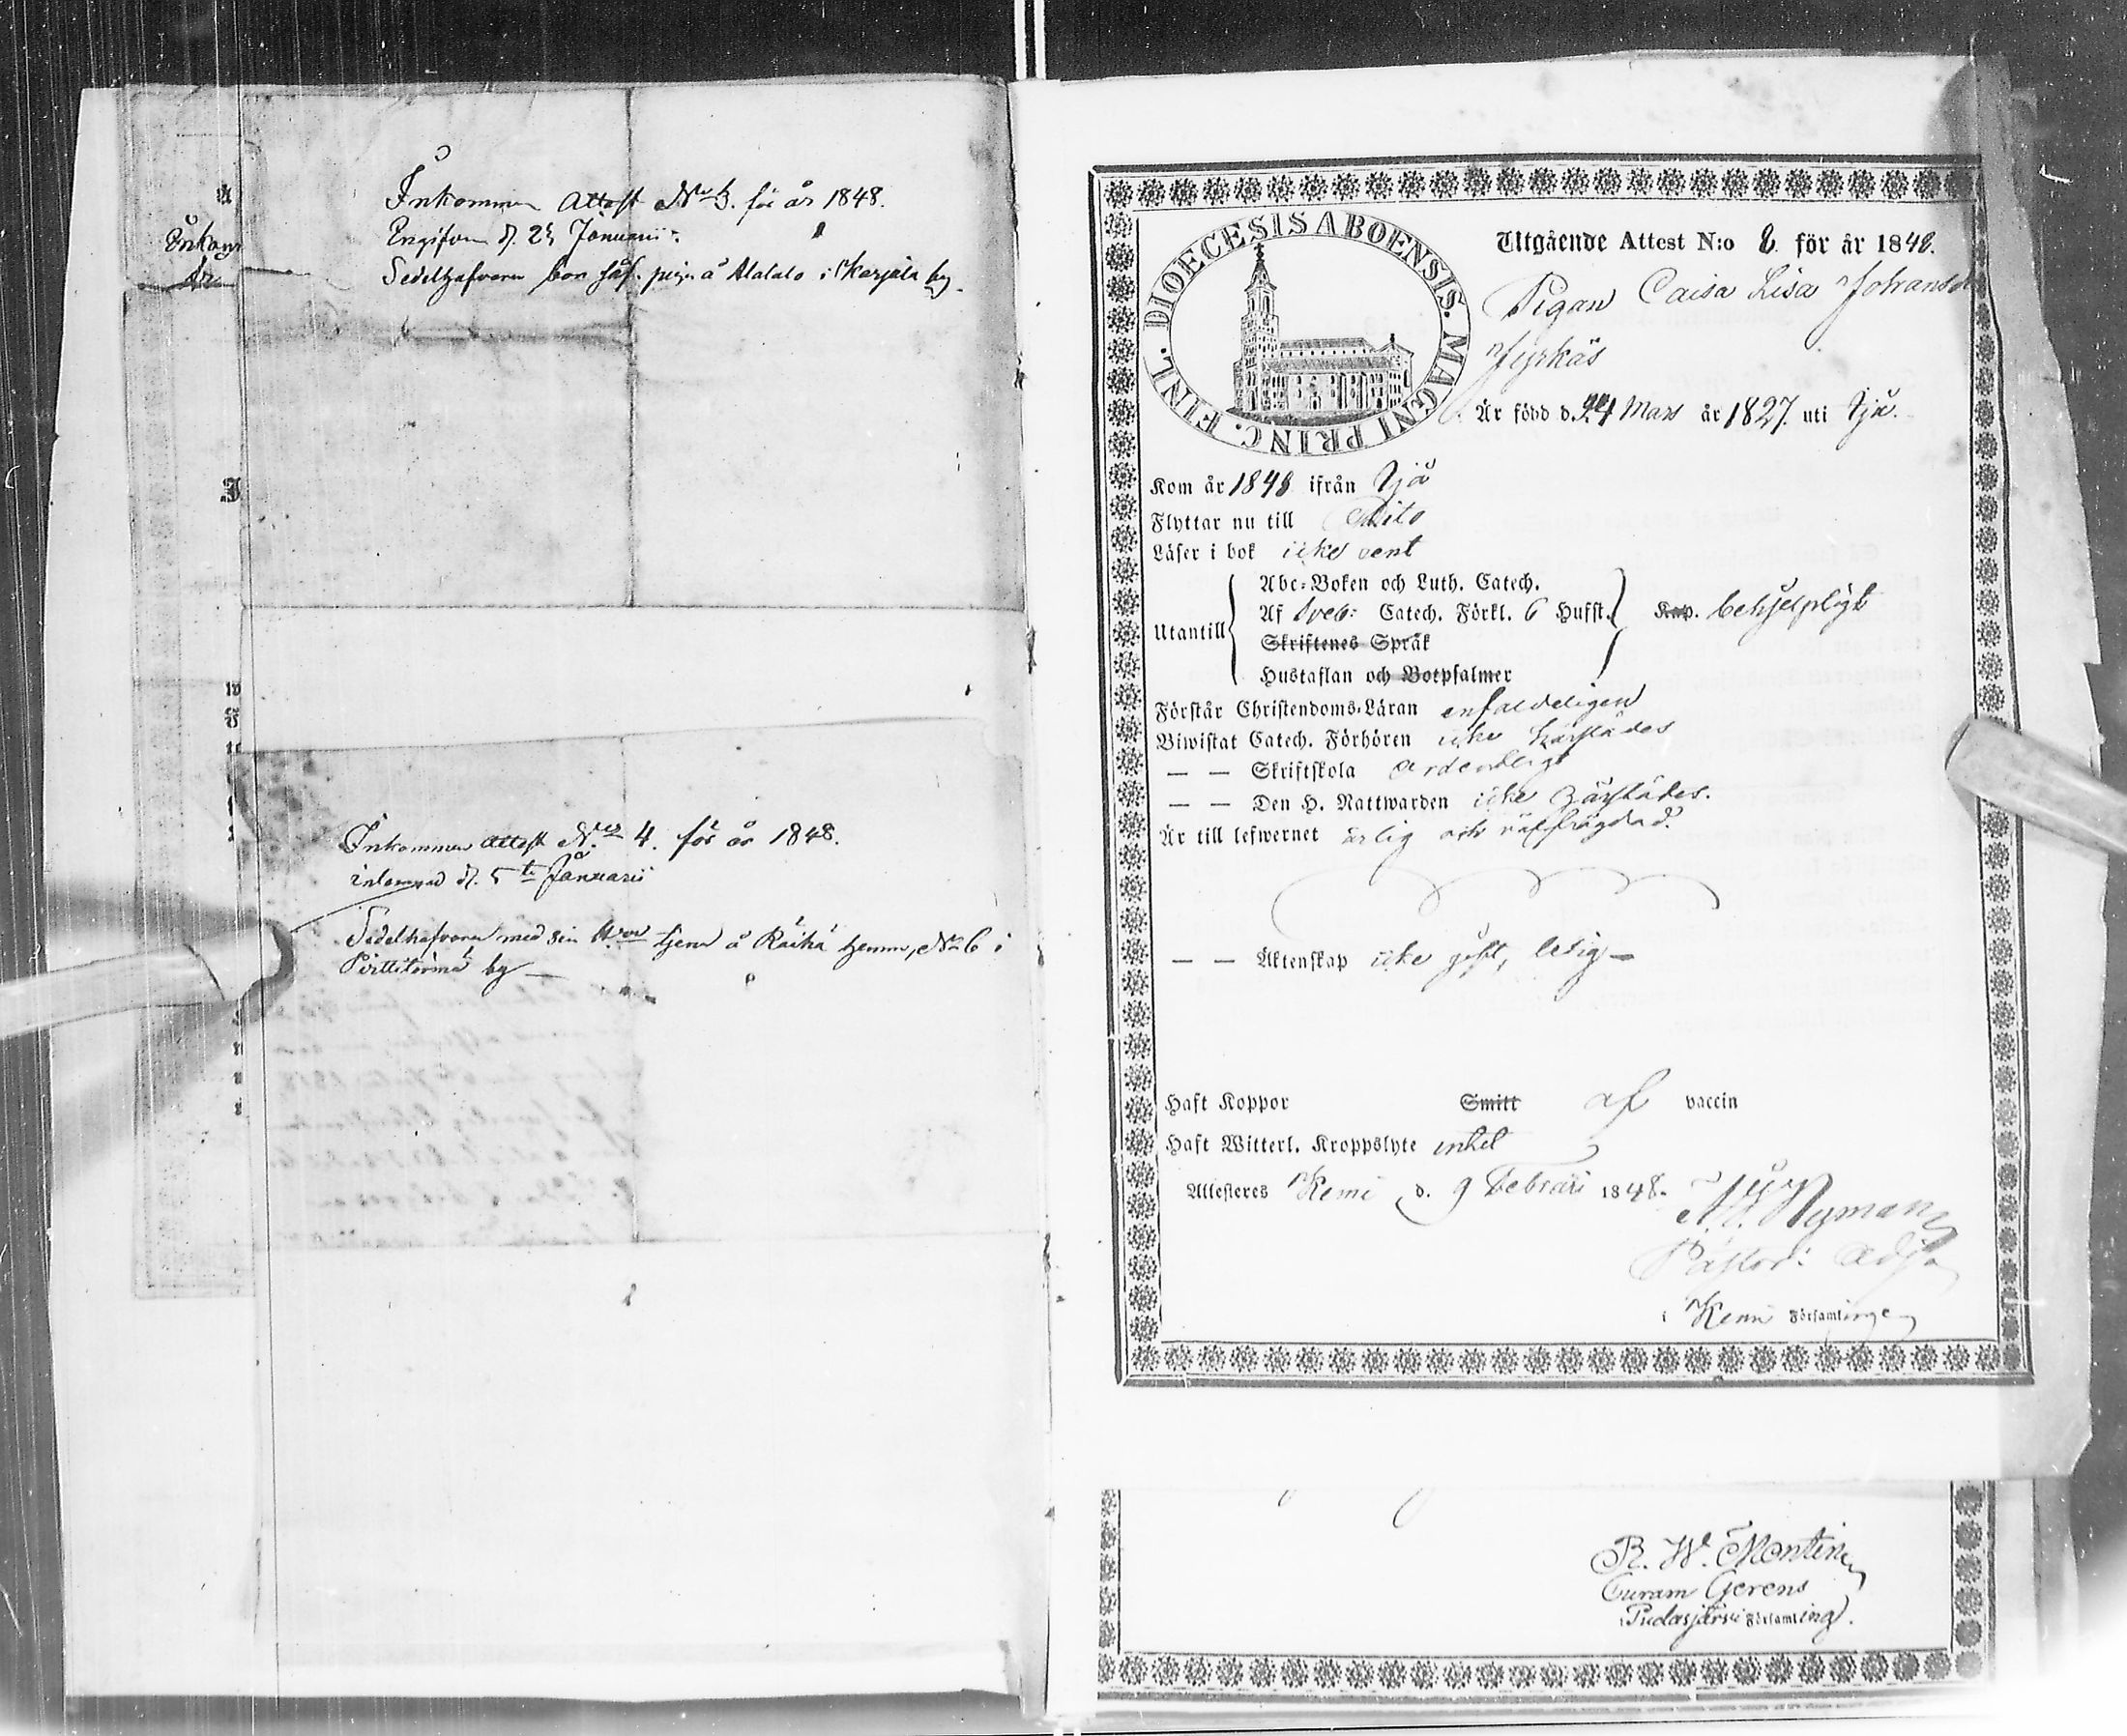 Inkommen Attest No 3. för år 1848.
Engifven d. Januarii.
Sedelhafvaren bor såf. piga å Alatalo i Karjala by.
Inkommen Attest No 4. för år 1848.
inlemnad d. 5te Januarii
Sedelhafvaren med sin tjena å Räihä hemm, No 6 i
Pirttitörmä by
DIOECESIS ABOENSIS. MAGNI PRINC. FINL.
Utgående Attest N:o 8. för år 1848.
Pigan Caisa Lisa
Jyrkäs
Är född d. 24 Mars år 1827. uti Ijo.
Kom år 1848 ifrån Ijo
Flyttar nu till Dito
Läser i bok icke rent
Abc-Boken och Luth. Catech.
Af Sveb: Catech. Förkl. 6 Hufst. Kap. behjelpligt
Utantill
Skriftenes Språk
Hustaflan och Botpsalmer
Förstår Christendoms-Läran enfaldeligen
Biwistat Catech. Förhören icke härstädes
— — Skriftskola ordentligt
— — Den H. Nattwarden icke härstädes.
Är till lefwernet ärlig och välfrägdad.
— — Äktenskap icke gift, ledig —
Haft Koppor Smitt af vaccin
Haft Witterl. Kroppslyte intet
Attesteres Kemi d. 9 Februari 1848.
Nyman
Pastor: Adj.
i Kemi Församlinge
R. W. Montin
Curam Gerens
i Pudasjärvi Församling.